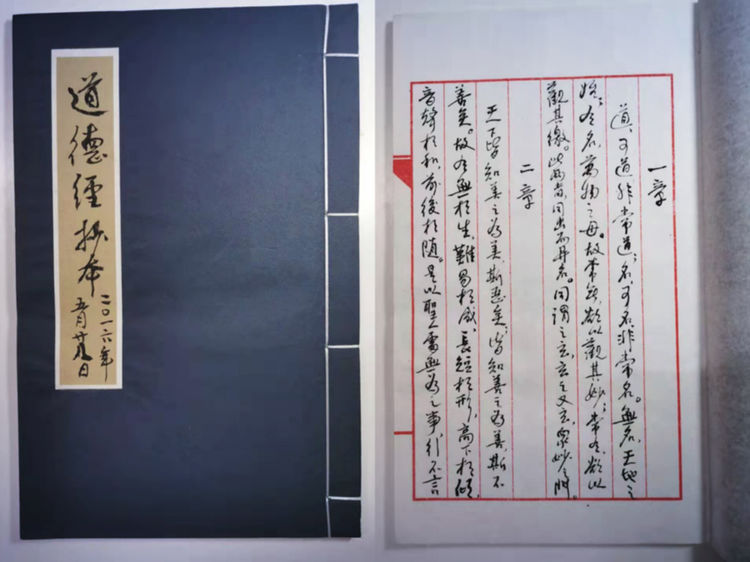 道德經抄本
二〇一六年
五月廿日
一章
道,可道非常道;名,可名非常名。無名,天地之
始;有名,萬物之母。故常無,欲以觀其妙;常有,欲以
觀其徼。此兩者,同出而異名。同謂之玄,玄之又玄,眾妙之門。
二章
天下皆知美之為美,斯惡矣;皆知善之為善,斯不
善矣。故有無相生,難易相成,長短相形,高下相傾,
音聲相和,前後相隨。是以聖人處無為之事,行不言